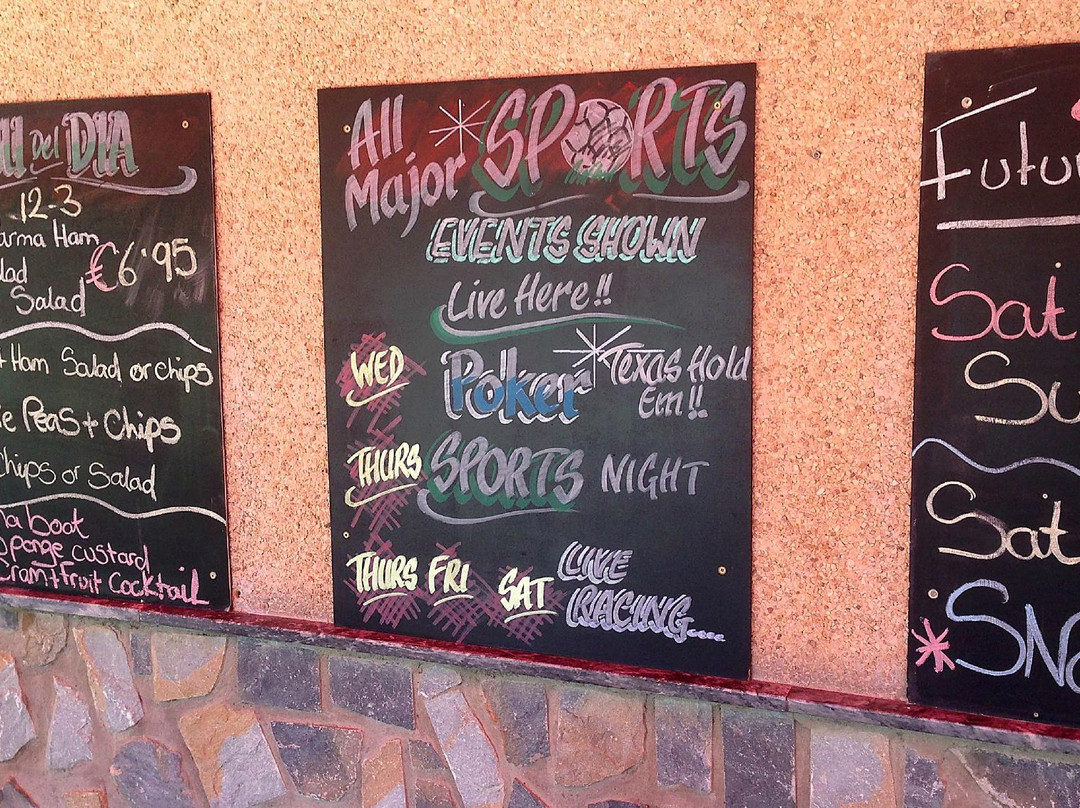 Del DIA
12-3
Ham
€6.95
Salad
Ham Salad or chips
Peas + Chips
Chips or Salad
boat
sponge custard
+ fruit cocktail
All Major SPORTS
EVENTS SHOWN
Live Here!!
WED Poker Texas Hold Em!!
THURS SPORTS NIGHT
THURS FRI SAT LIVE RACING....
Sat
Sat